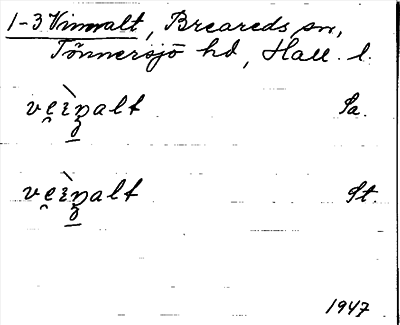 1-3 Vinnalt, Breareds sn,
Tönnersjö hd, Hall. l.
vei̯nalt Sa.
vei̯nalt St.
1947